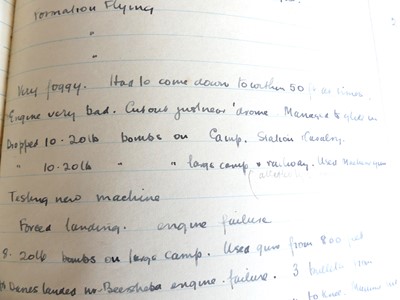 Formation Flying
"
"
Very foggy. Had to come down to within 50 ft
Engine very bad. Cut out just near 'drome. Managed to glide in
Dropped 10. 20lb bombs on Camp. Station & Cavalry.
" 10. 20lb " " large camp & railway. Used machine gun
Testing new machine
Forced landing. engine failure
8. 20lb bombs on large camp. Used guns from 800 feet
landed nr. Beersheba engine failure. 3 bullets